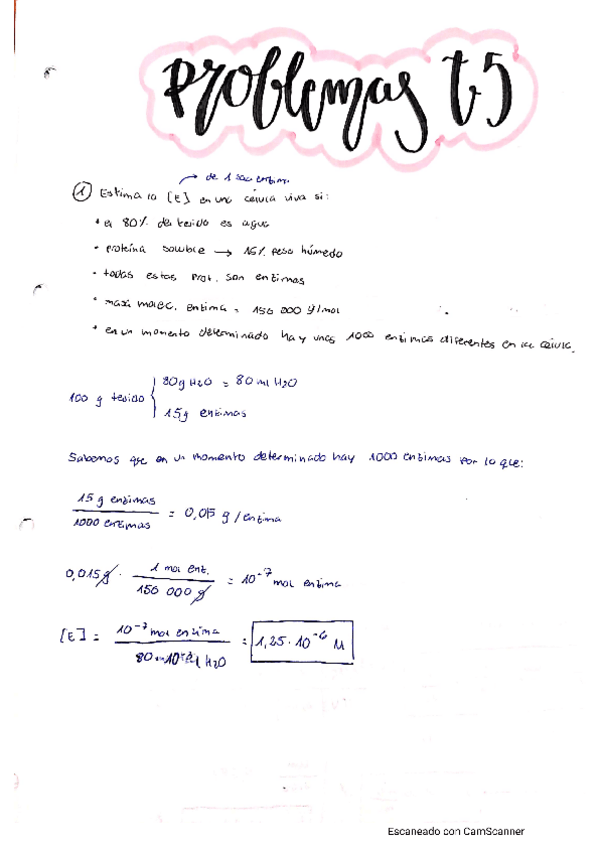 Problemas t5
de 1 sola enzim.
① Estima la [E] en una célula viva si:
• el 80% del tejido es agua
• proteína soluble → 15% peso húmedo
• todas estas prot. son enzimas
• masa molec. enzima = 150 000 g/mol
• en un momento determinado hay unas 1000 enzimas diferentes en la célula.
100 g tejido { 80g H2O = 80 ml H2O
15g enzimas
Sabemos que en un momento determinado hay 1000 enzimas por lo que:
15 g enzimas / 1000 enzimas = 0,015 g/enzima
0,015g · 1 mol enz. / 150 000 g = 10⁻⁷ mol enzima
[E] = 10⁻⁷ mol enzima / 80 · 10⁻³ l H2O = 1,25 · 10⁻⁶ M
Escaneado con CamScanner